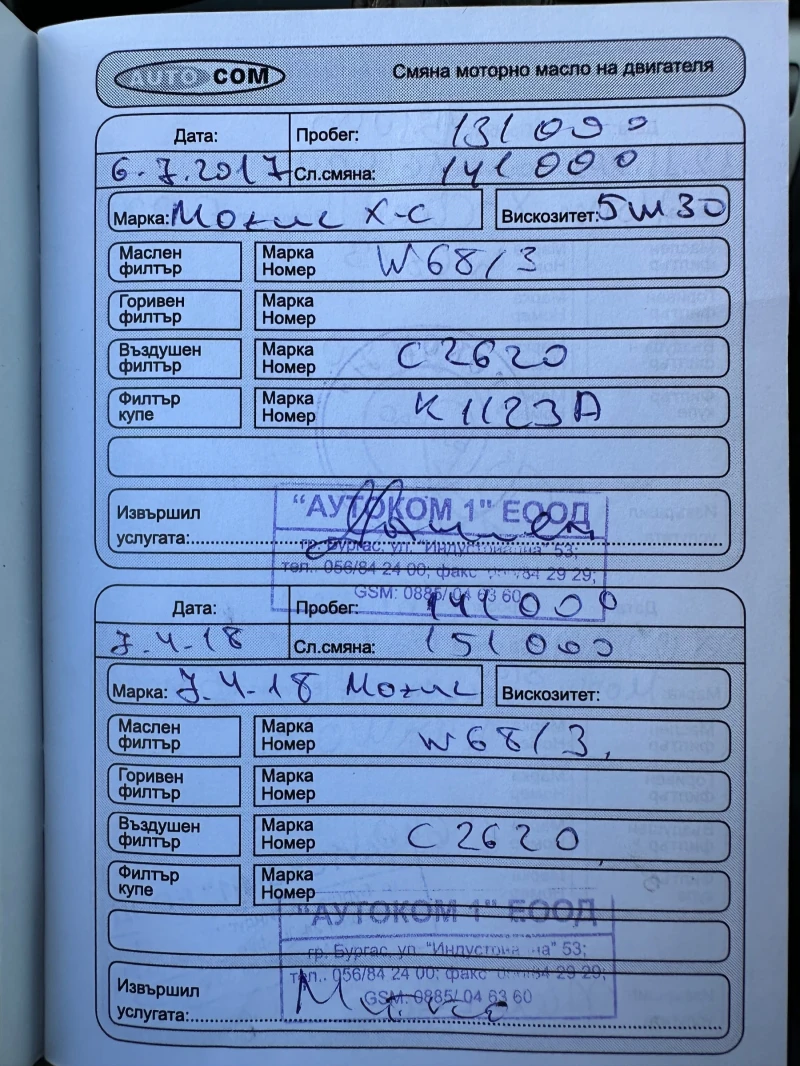 AUTO COM
Смяна моторно масло на двигателя
Дата: Пробег: 131000
6.7.2017 Сл.смяна: 141000
Марка: Мотис Х-С Вискозитет: 5W30
Маслен филтър Марка Номер W68/3
Горивен филтър Марка Номер
Въздушен филтър Марка Номер C2620
Филтър купе Марка Номер K1123A
"АУТОКОМ 1" ЕООД
Извършил
услугата:
гр. Бургас, ул. "Индустриална" 53;
тел.: 056/84 24 00; факс 84 29 29;
GSM: 0885/ 04 63 60
Дата: Пробег: 141000
7.4-18 Сл.смяна: 151000
Марка: 7.4-18 Мотис Вискозитет:
Маслен филтър Марка Номер W68/3
Горивен филтър Марка Номер
Въздушен филтър Марка Номер C2620
Филтър купе Марка Номер
"АУТОКОМ 1" ЕООД
гр. Бургас, ул. "Индустриална" 53;
тел.: 056/84 24 00; факс 84 29 29;
GSM: 0885/ 04 63 60
Извършил
услугата: